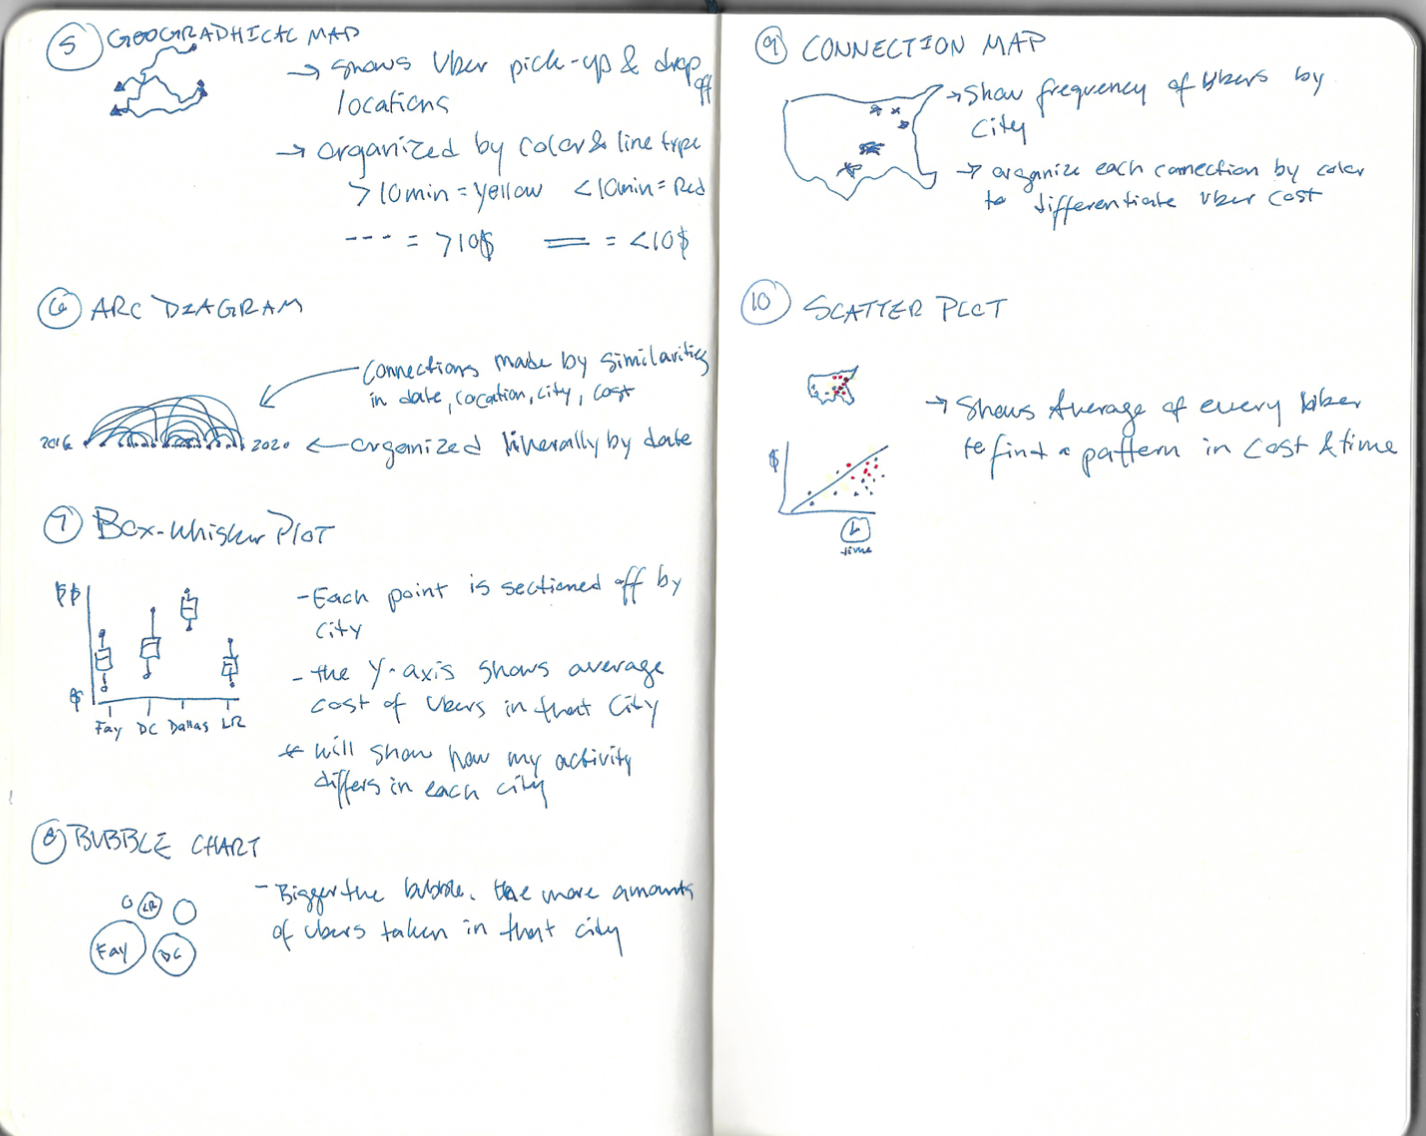 5 GEOGRAPHICAL MAP
→ Shows Uber pick-up & drop off
locations
→ organized by color & line type
>10min = yellow <10min = Red
--- = >10$ = <10$
6 ARC DIAGRAM
Connections made by similarities
in date, location, city, cost
2016 2020 ← organized linerally by date
7 Box-Whisker PLOT
$$
$
Fay DC Dallas LR
- Each point is sectioned off by
city
- the Y-axis shows average
cost of Ubers in that City
* will show how my activity
differs in each city
8 BUBBLE CHART
LR
Fay DC
- Bigger the bubble, the more amounts
of Ubers taken in that city
9 CONNECTION MAP
→ Show frequency of Ubers by
City
→ organize each connection by color
to differentiate Uber cost
10 SCATTER PLOT
→ Shows Average of every Uber
to find a pattern in Cost & time
$
time